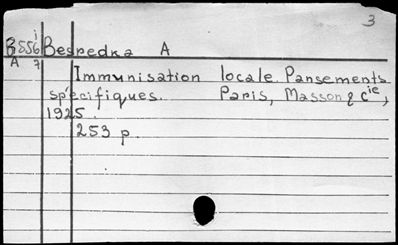 3
B556i Besredka A
A 7
Immunisation locale. Pansements
spécifiques. Paris, Masson & Cie,
1925.
253 p.